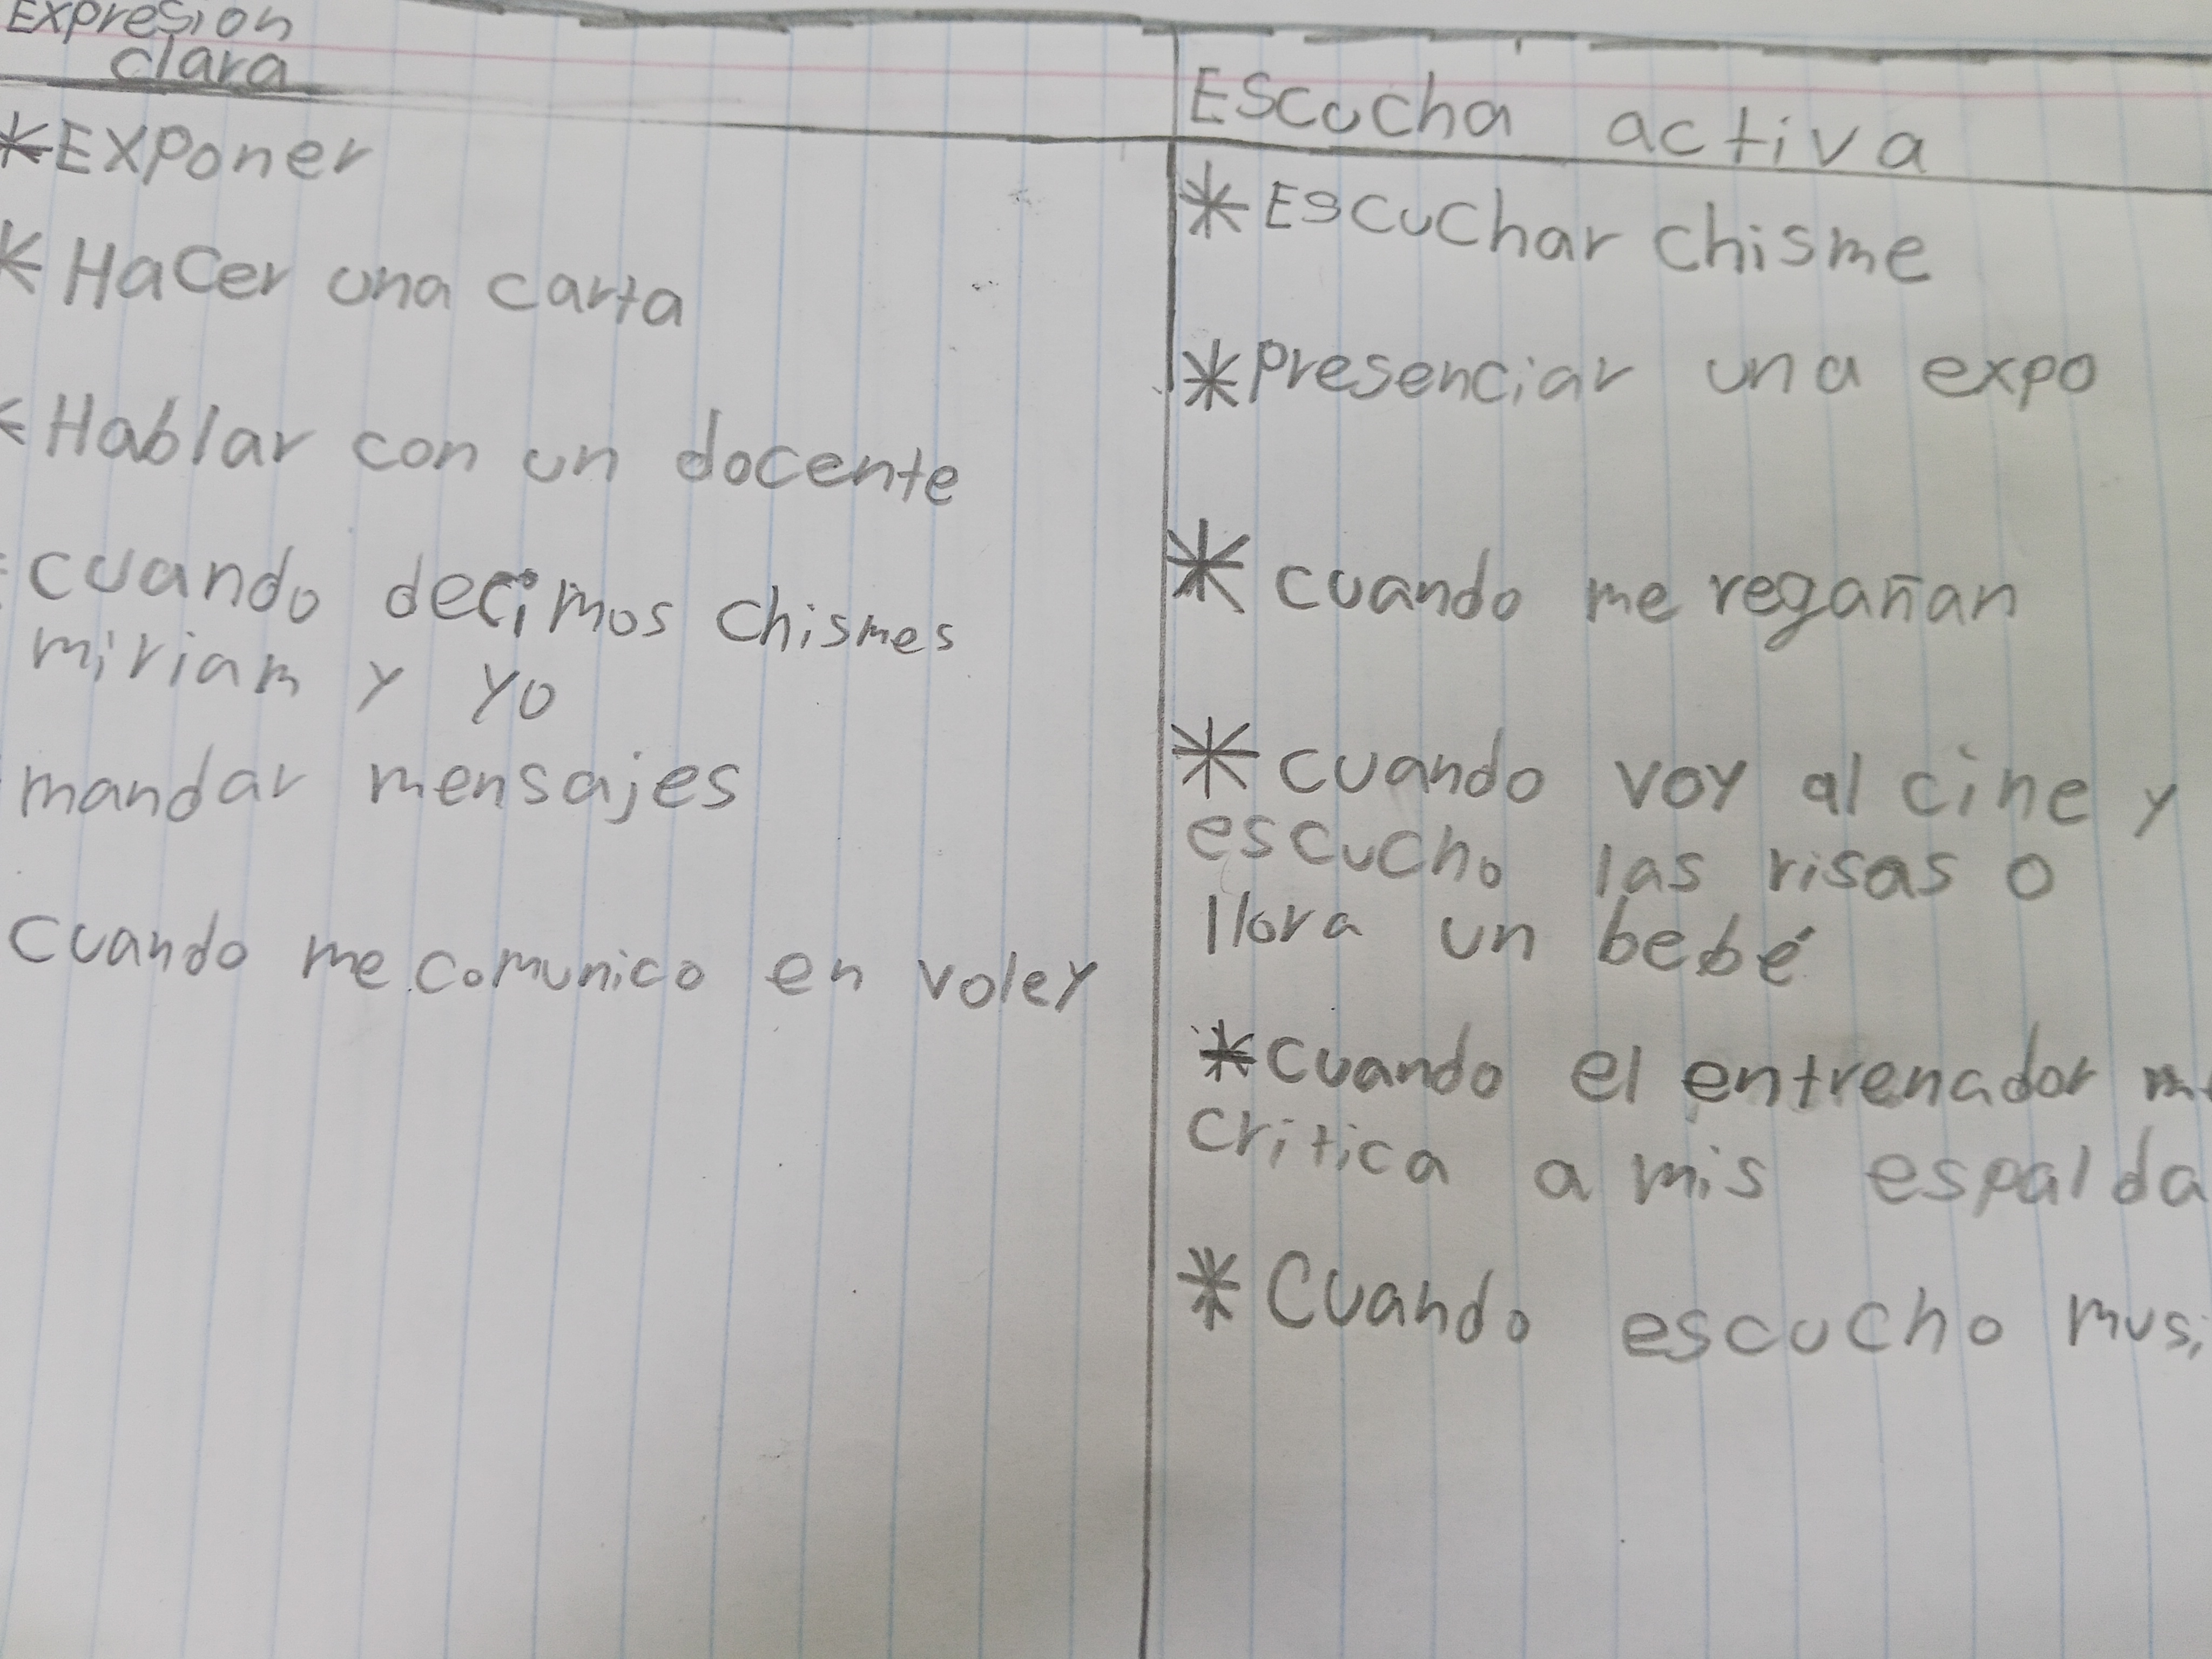 Expresion
clara
*Exponer
* Hacer una carta
* Hablar con un docente
cuando decimos chismes
miriam y yo
mandar mensajes
cuando me comunico en voley
Escucha activa
* Escuchar chisme
* Presenciar una expo
* cuando me regañan
* cuando voy al cine y
escucho las risas o
llora un bebé
* cuando el entrenador
critica a mis espalda
* Cuando escucho musi